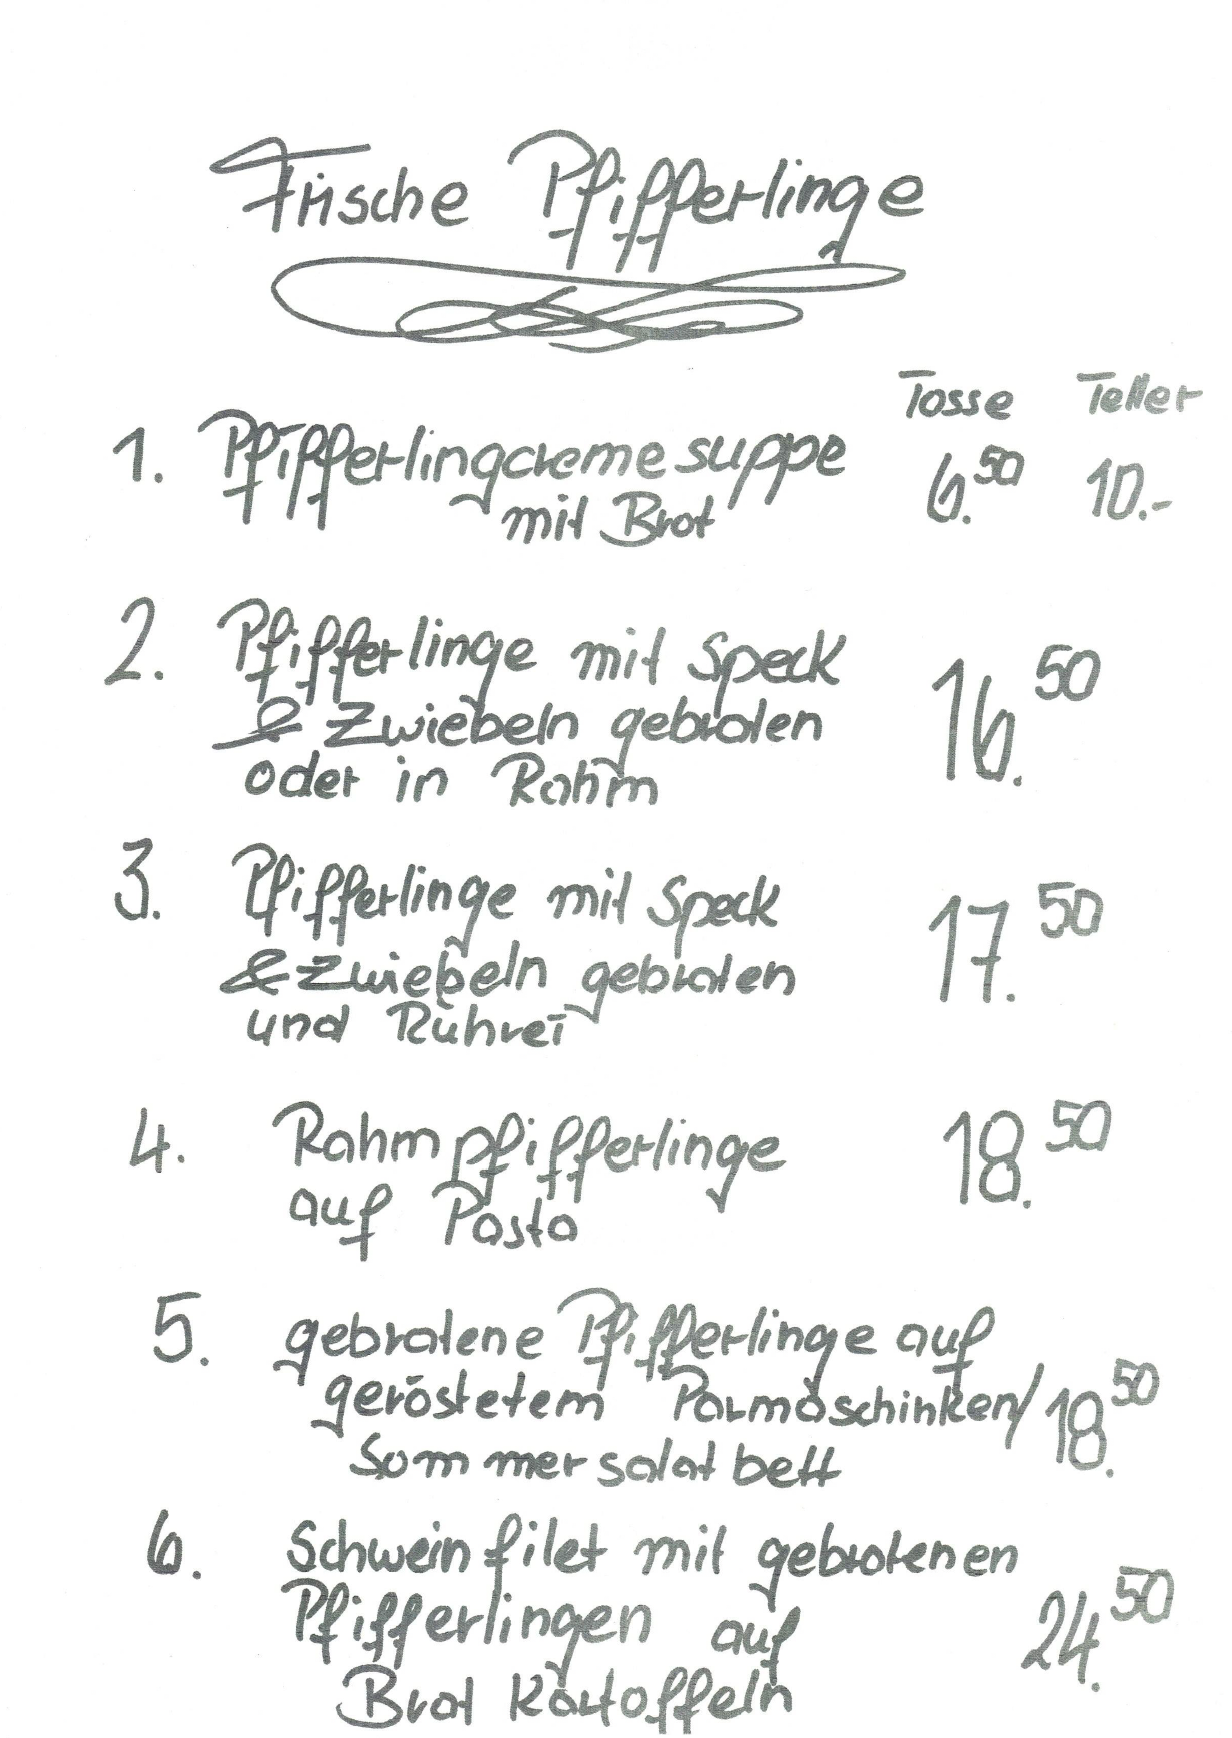 Frische Pfifferlinge
Tasse Teller
1. Pfifferlingcremesuppe 6.50 10.-
mit Brot
2. Pfifferlinge mit Speck 16.50
& Zwiebeln gebraten
oder in Rahm
3. Pfifferlinge mit Speck 17.50
& Zwiebeln gebraten
und Rührei
4. Rahmpfifferlinge 18.50
auf Pasta
5. gebratene Pfifferlinge auf
geröstetem Parmaschinken/ 18.50
Sommersalatbett
6. Schweinfilet mit gebratenen
Pfifferlingen auf 24.50
Bratkartoffeln